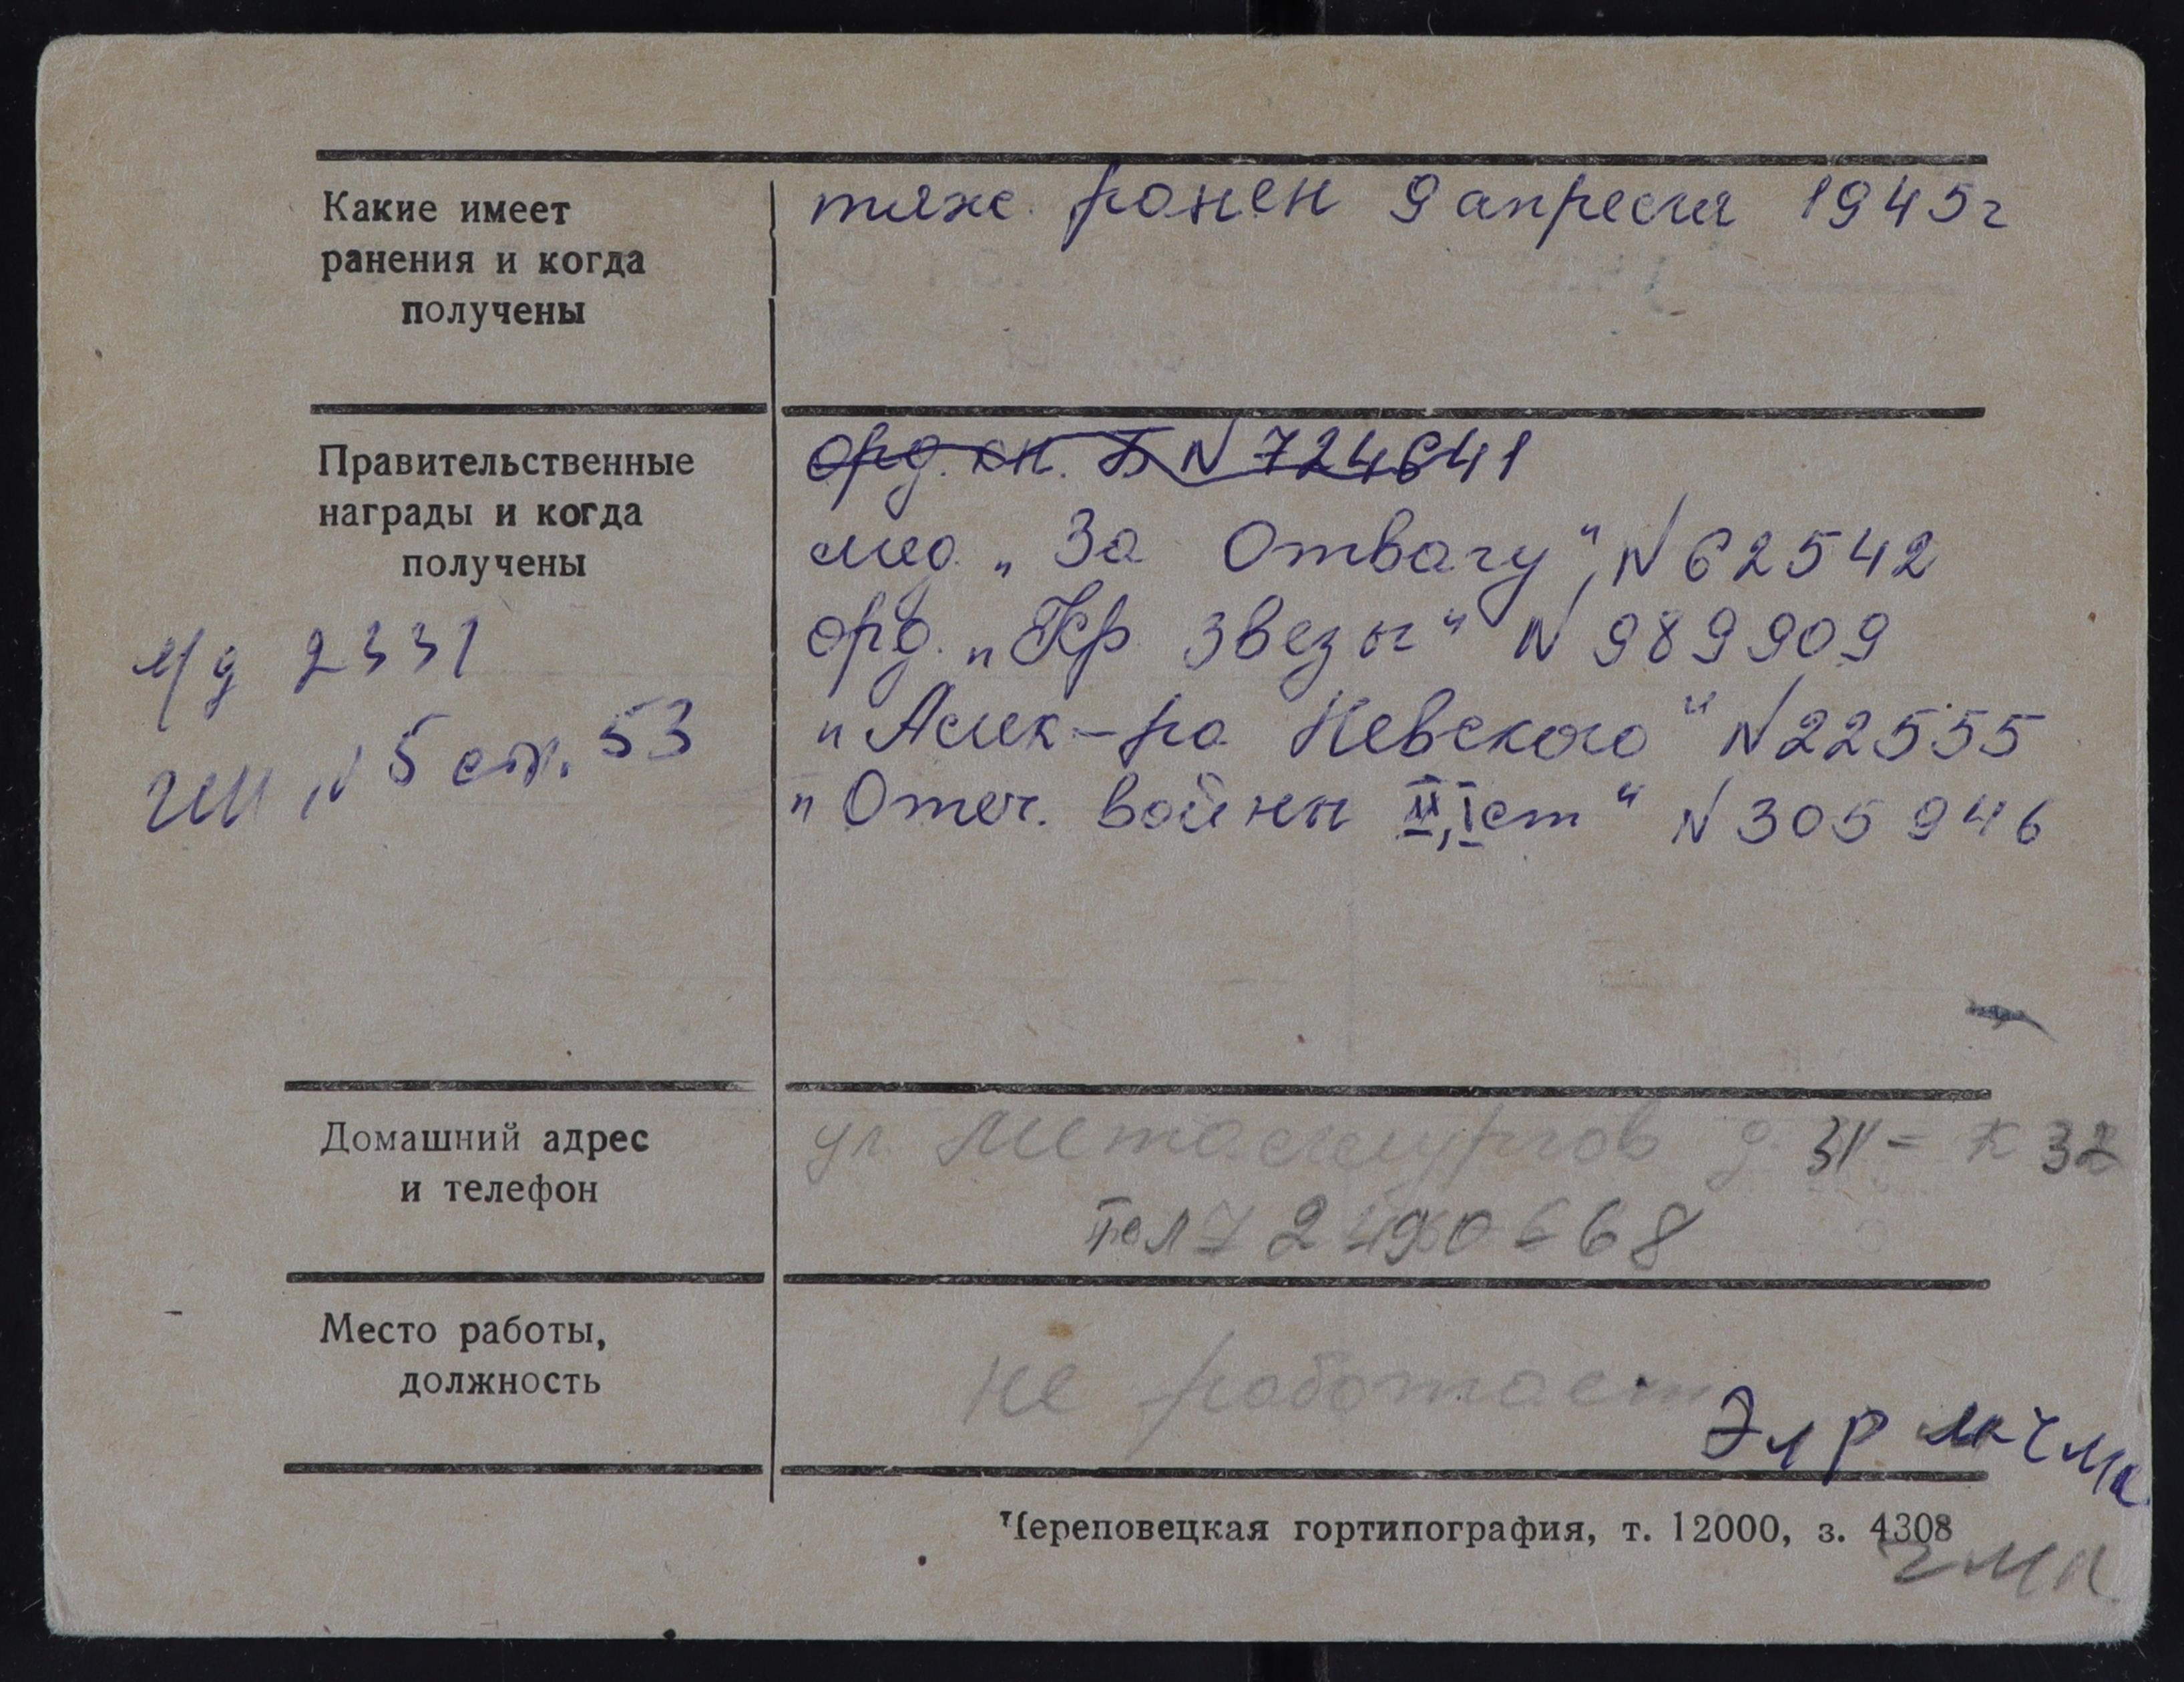 Какие имеет
ранения и когда
получены
тяж. ранен 9 апреля 1945г
Правительственные
награды и когда
получены
орд. кн. N 724641
мед. „За Отвагу", N 62542
орд. „Кр. Звезы" N 989909
"Алек-ра Невского" N 22555
"Отеч. войны II, I ст" N 305946
м/д 2331
N 5 ст. 53
Домашний адрес
и телефон
ул. Металлургов д. 31 - к 32
тел
Место работы,
должность
не работает
Элр
Череповецкая гортипография, т. 12000, з. 4308